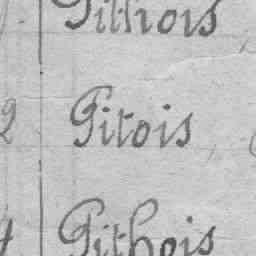 Pithois
2 Pitois
4 Pithois